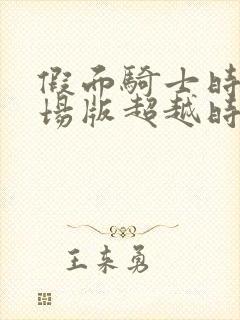 假面騎士時
場版超越時
王来勇